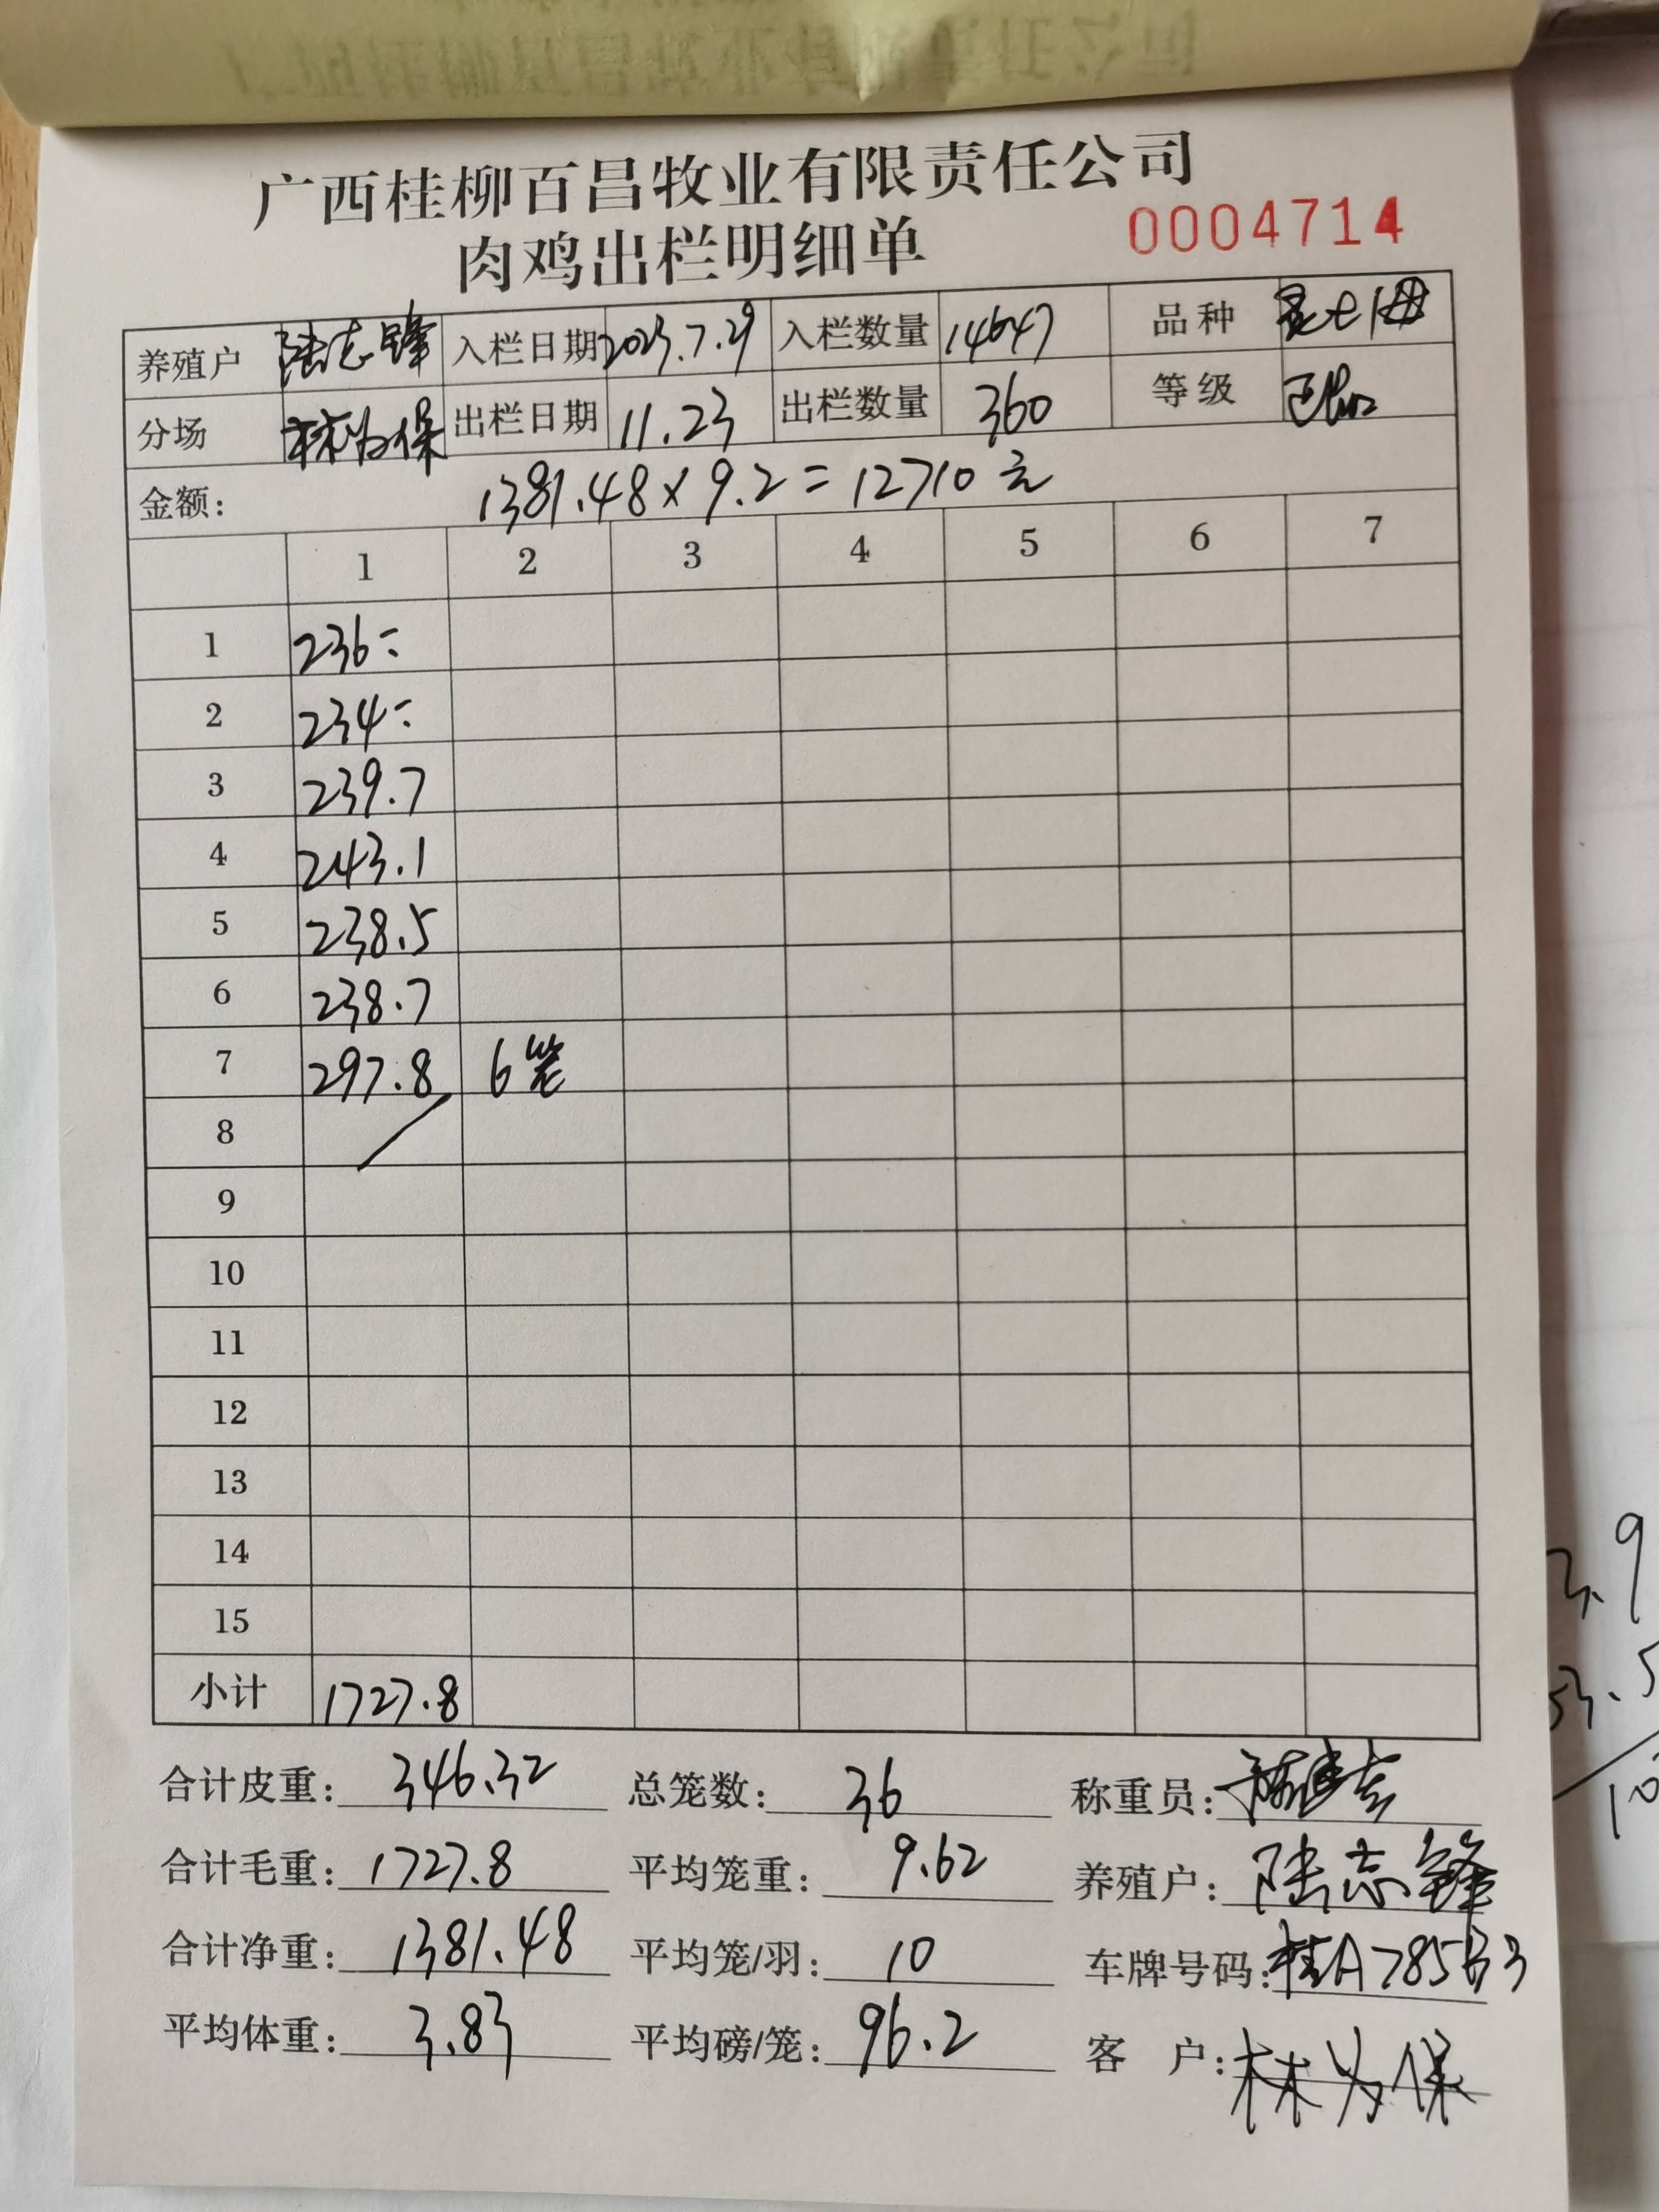 广西桂柳百昌牧业有限责任公司
肉鸡出栏明细单 0004714
养殖户 陆志锋 入栏日期 2023.7.29 入栏数量 14647 品种
分场 林为保 出栏日期 11.23 出栏数量 360 等级
金额: 1381.48×9.2=12710元
1 2 3 4 5 6 7
1 236=
2 234=
3 239.7
4 243.1
5 238.5
6 238.7
7 297.8 6笼
8
9
10
11
12
13
14
15
小计 1727.8
合计皮重: 346.32 总笼数: 36 称重员:
合计毛重: 1727.8 平均笼重: 9.62 养殖户: 陆志锋
合计净重: 1381.48 平均笼/羽: 10 车牌号码: 桂A785B3
平均体重: 3.83 平均磅/笼: 96.2 客 户: 林为保